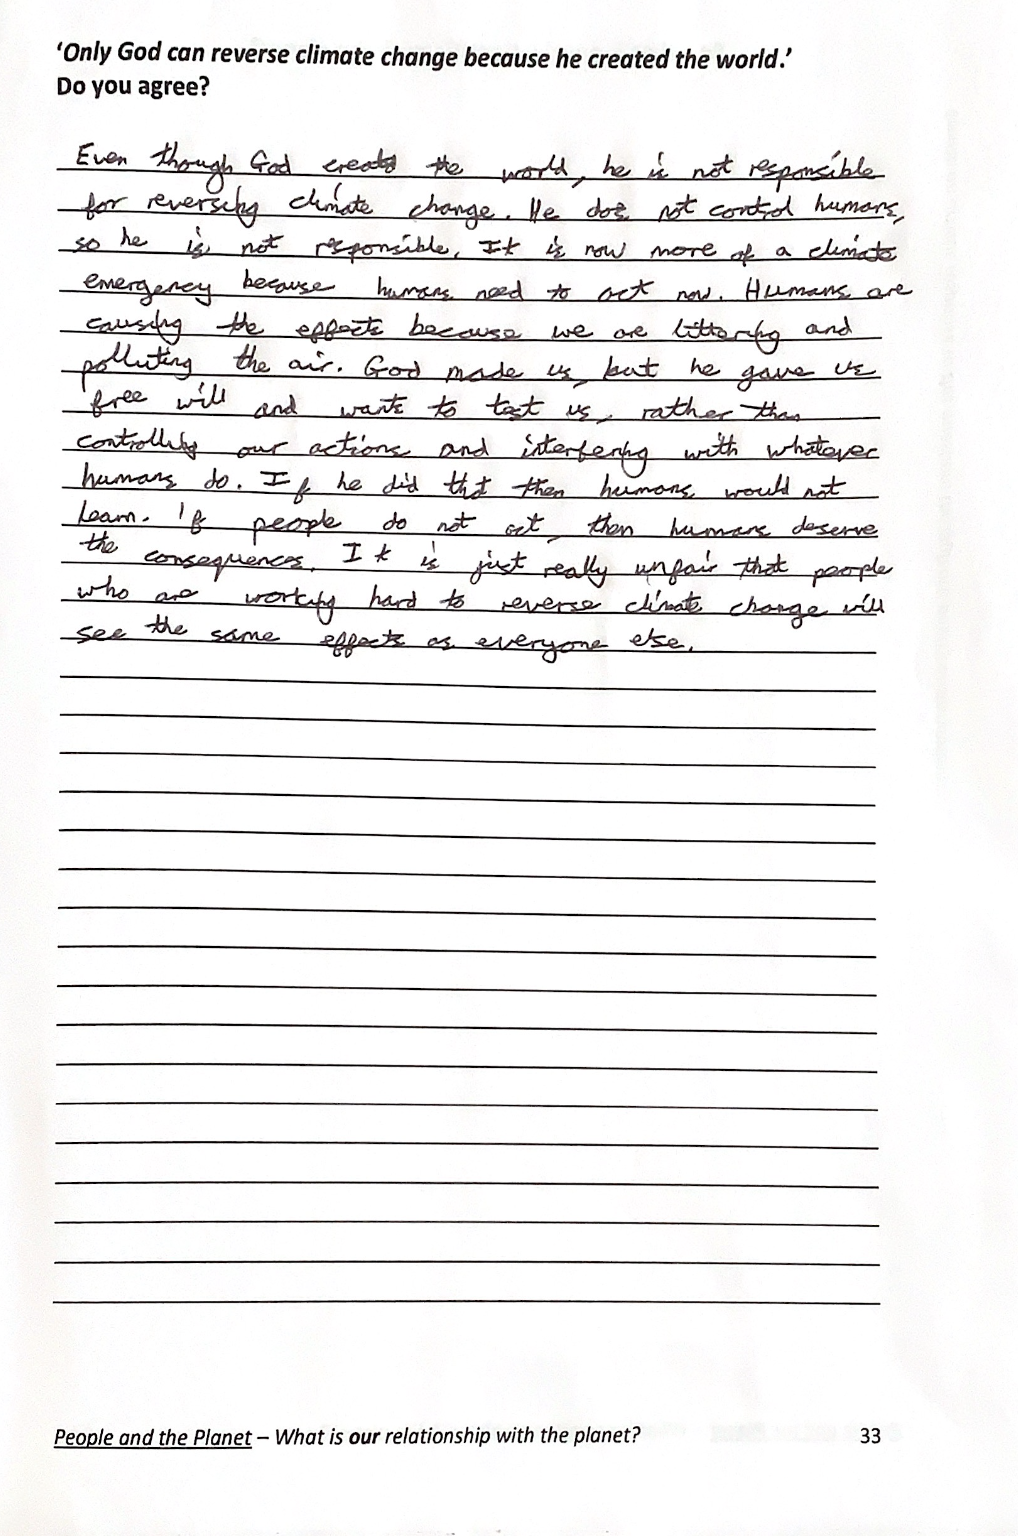 'Only God can reverse climate change because he created the world.'
Do you agree?
Even though God created the world, he is not responsible
for reversing climate change. He does not control humans,
so he is not responsible. It is now more of a climate
emergency because humans need to act now. Humans are
causing the effects because we are littering and
polluting the air. God made us, but he gave us
free will and wants to test us, rather than
controlling our actions and interfering with whatever
humans do. If he did that then humans would not
learn. If people do not act, then humans deserve
the consequences. It is just really unfair that people
who are working hard to reverse climate change will
see the same effects as everyone else.
People and the Planet – What is our relationship with the planet?
33